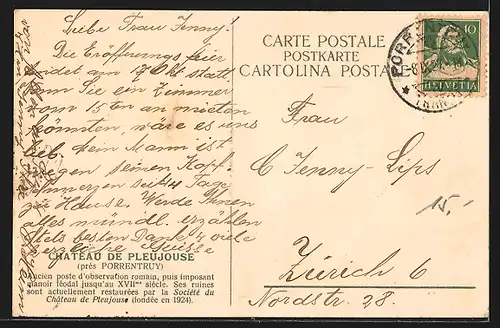 Liebe Frau Jenny!
Die Eröffnungsfeier
findet am 7 Okt statt
Wenn Sie ein Zimmer
vom 15ten an mieten
könnten, wäre es uns
lieb, dein Mann ist
wegen seinen Kopf-
schmerzen seit 4 Tage
zu Hause. Werde Ihnen
alles mündl. erzählen
Stets besten Dank & viele
herzliche Grüsse
CHATEAU DE PLEUJOUSE
(près PORRENTRUY)
Ancien poste d'observation romain, puis imposant
manoir féodal jusqu'au XVIIme siècle. Ses ruines
sont actuellement restaurées par la Société du
Château de Pleujouse (fondée en 1924).
CARTE POSTALE
POSTKARTE
CARTOLINA POSTA
10
HELVETIA
Frau
C Jenny-Lips
15.-
Zürich 6
Nordstr. 28.